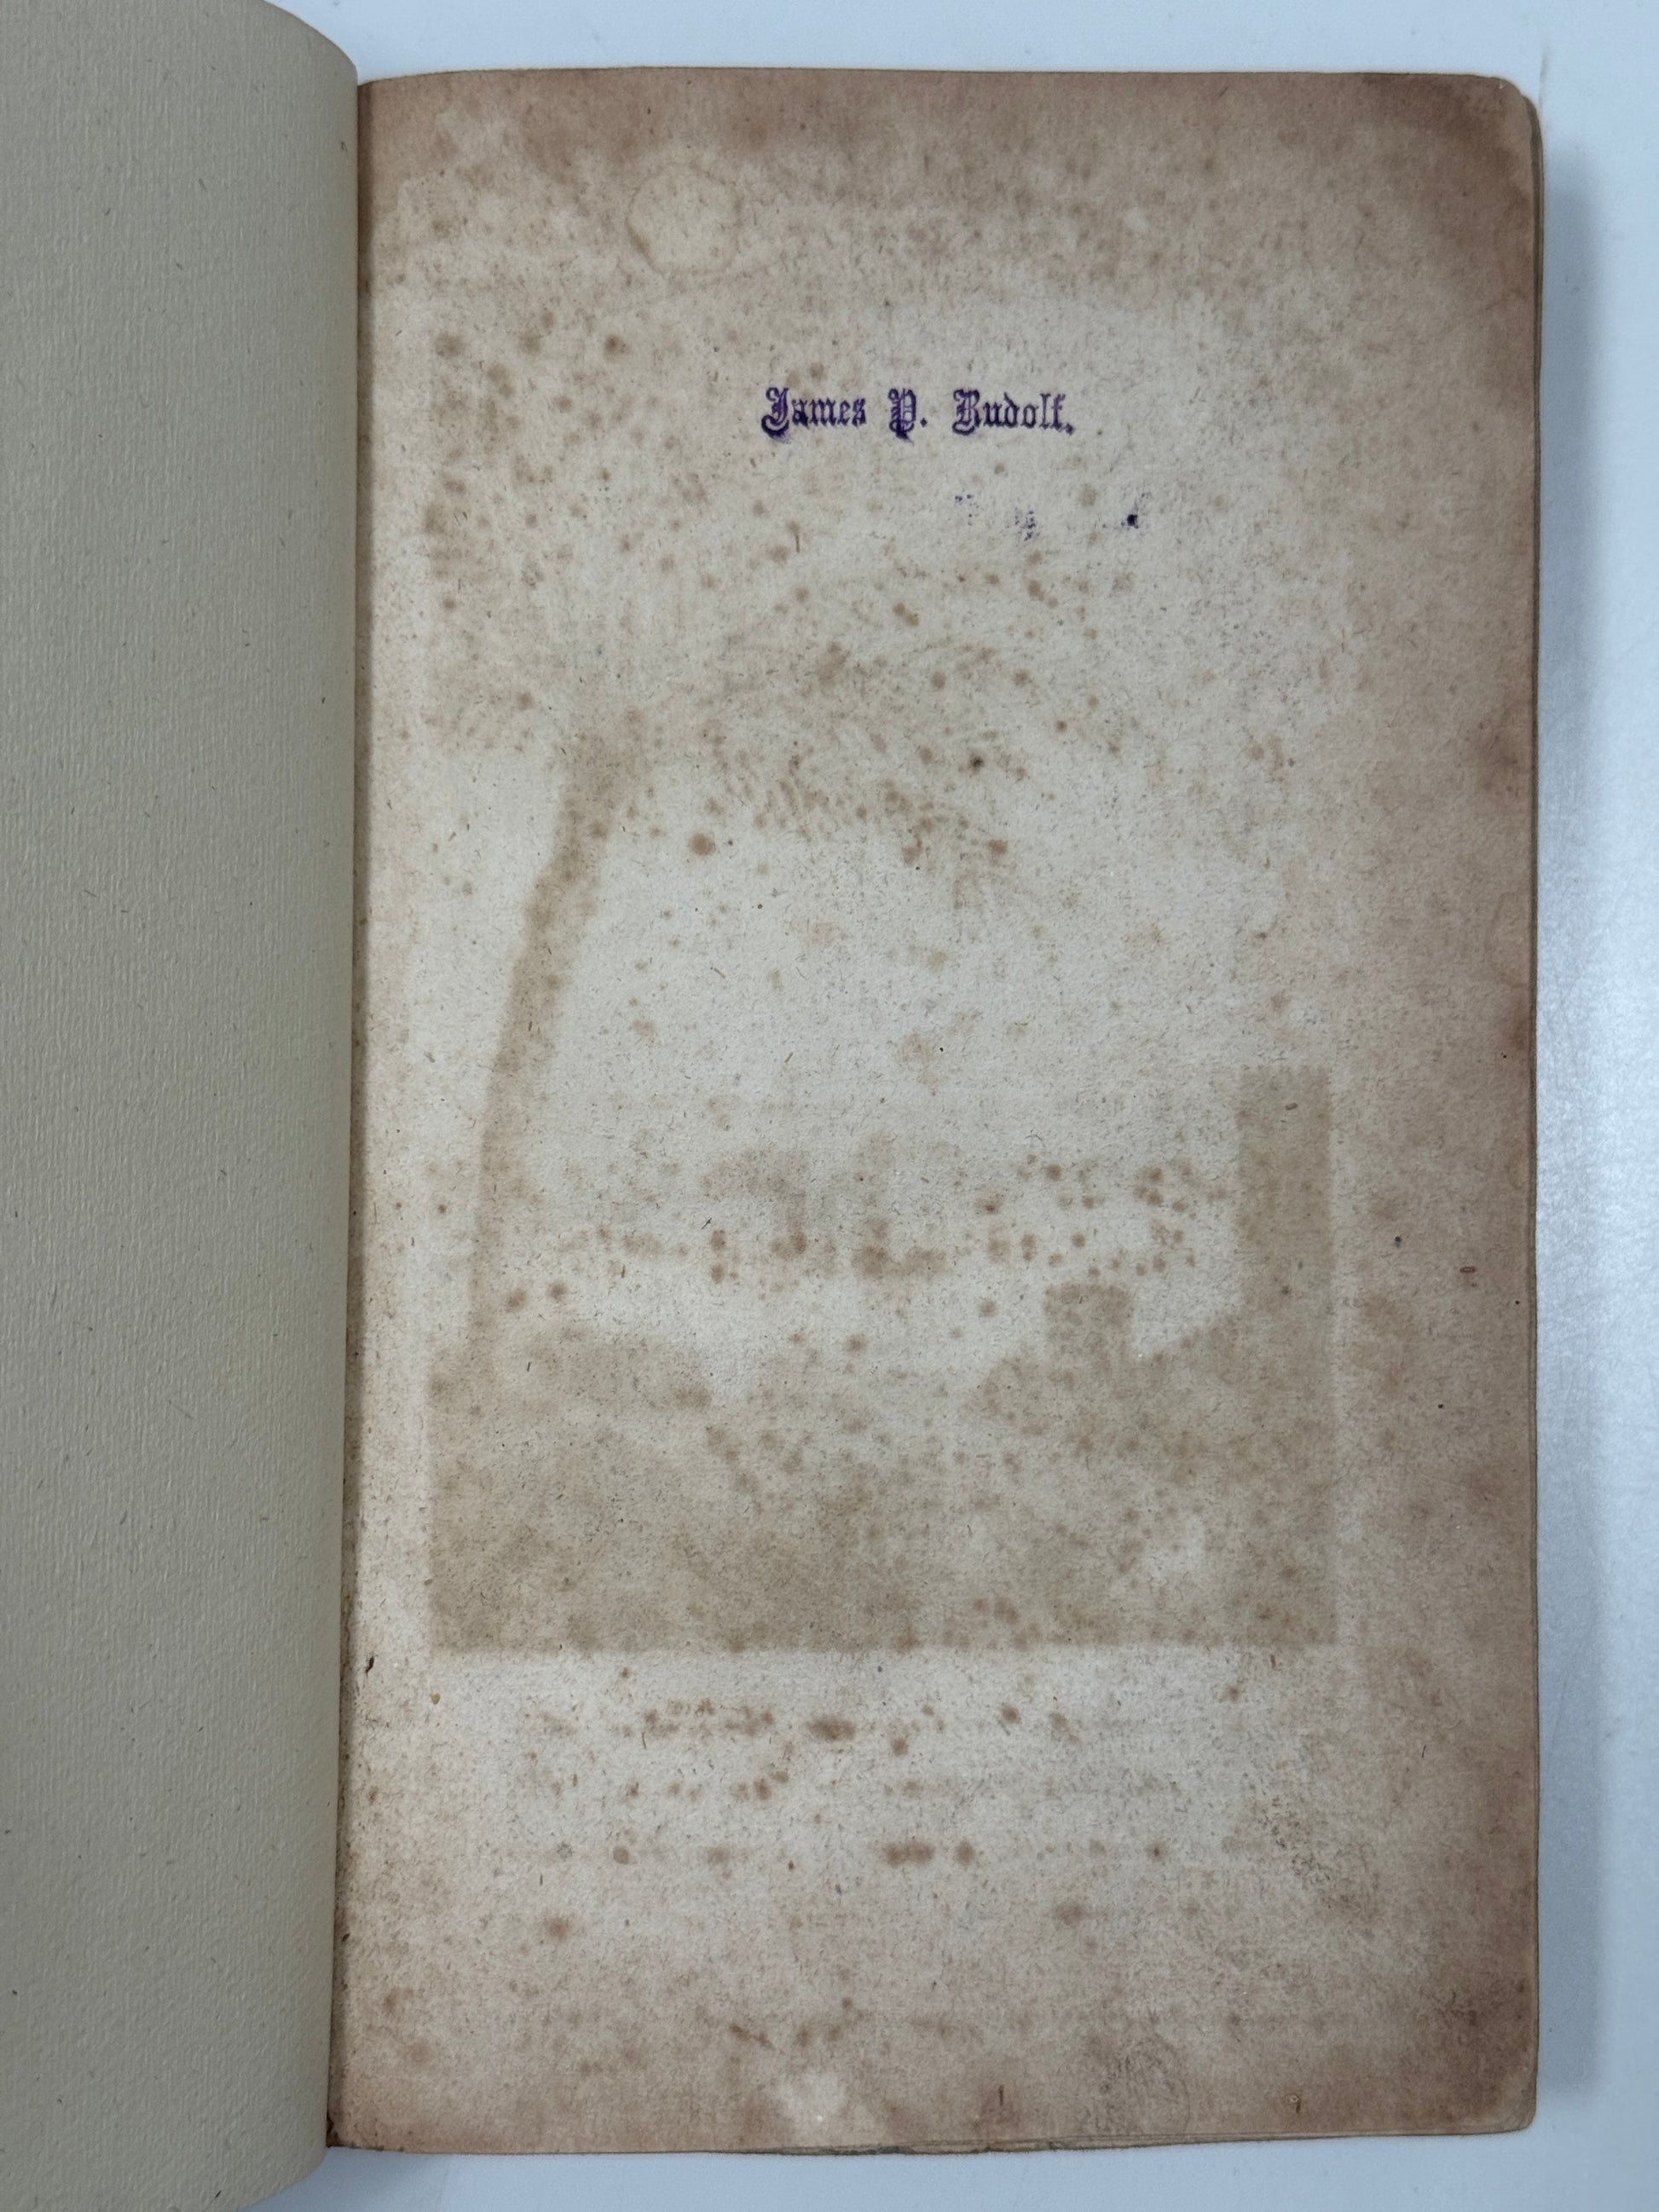 James P. Rudolf.